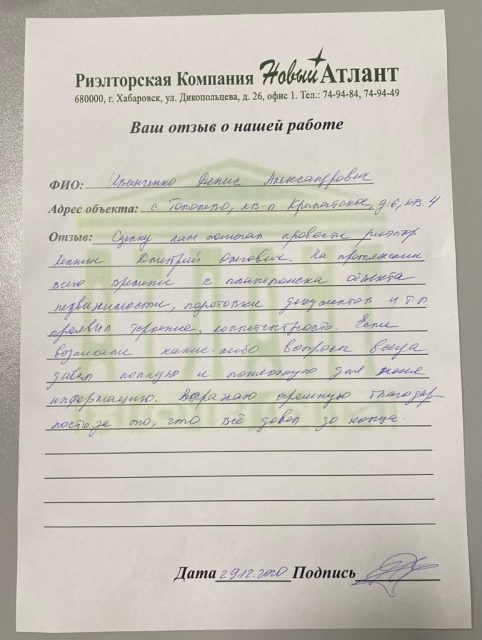 Риэлторская Компания Новый Атлант
680000, г. Хабаровск, ул. Дикопольцева, д. 26, офис 1. Тел.: 74-94-84, 74-94-49
Ваш отзыв о нашей работе
ФИО: Иванченко Денис Александрович
Адрес объекта: с Тополево, кв-л Крылатское, д 6, кв. 4
Отзыв: Сделку нам помогал провести риэлтор
Дмитрий Олегович. На протяжении
всего времени с объекта
недвижимости, подготовки документов и т.п
проявил терпение, компетентность. Если
возникали какие-либо вопросы всегда
давал полную и понятную для меня
информацию. Выражаю огромную благодар-
ность за то, что всё довел до конца.
Дата 29.12.2020 Подпись